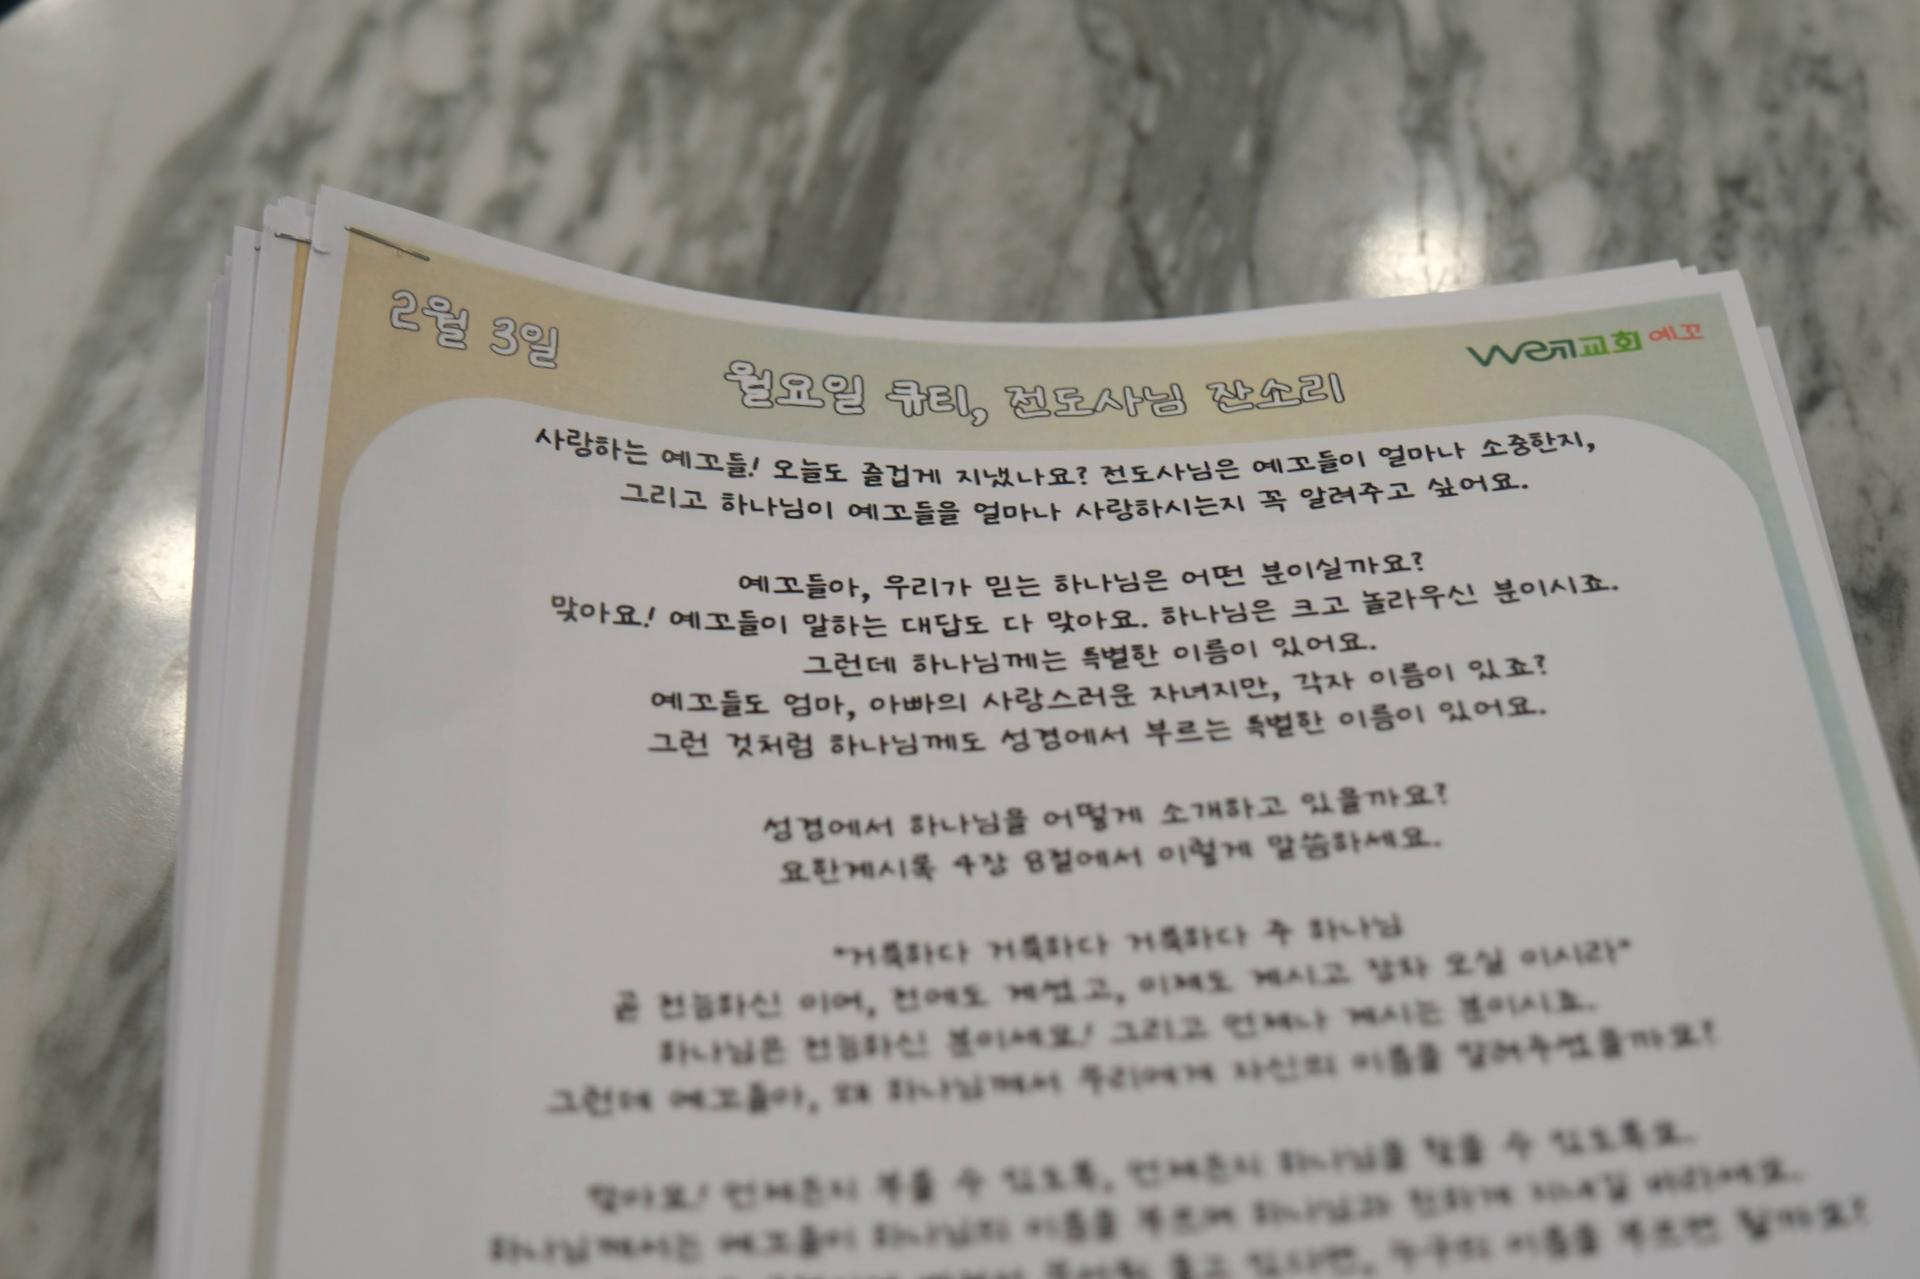 2월 3일
Wen교회 예꼬
월요일 큐티, 전도사님 잔소리
사랑하는 예꼬들! 오늘도 즐겁게 지냈나요? 전도사님은 예꼬들이 얼마나 소중한지,
그리고 하나님이 예꼬들을 얼마나 사랑하시는지 꼭 알려주고 싶어요.
예꼬들아, 우리가 믿는 하나님은 어떤 분이실까요?
맞아요! 예꼬들이 말하는 대답도 다 맞아요. 하나님은 크고 놀라우신 분이시죠.
그런데 하나님께는 특별한 이름이 있어요.
예꼬들도 엄마, 아빠의 사랑스러운 자녀지만, 각자 이름이 있죠?
그런 것처럼 하나님께도 성경에서 부르는 특별한 이름이 있어요.
성경에서 하나님을 어떻게 소개하고 있을까요?
요한계시록 4장 8절에서 이렇게 말씀하세요.
"거룩하다 거룩하다 거룩하다 주 하나님
곧 전능하신 이여, 전에도 계셨고, 이제도 계시고 장차 오실 이시라"
하나님은 전능하신 분이세요! 그리고 언제나 계시는 분이시죠.
그런데 예꼬들아, 왜 하나님께서 우리에게 자신의 이름을 알려주셨을까요?
맞아요! 언제든지 부를 수 있도록, 언제든지 하나님을 찾을 수 있도록요.
하나님께서는 예꼬들이 하나님의 이름을 부르며 하나님과 친하게 지내길 바라세요.
있다면, 누구의 이름을 부르면 될까요?